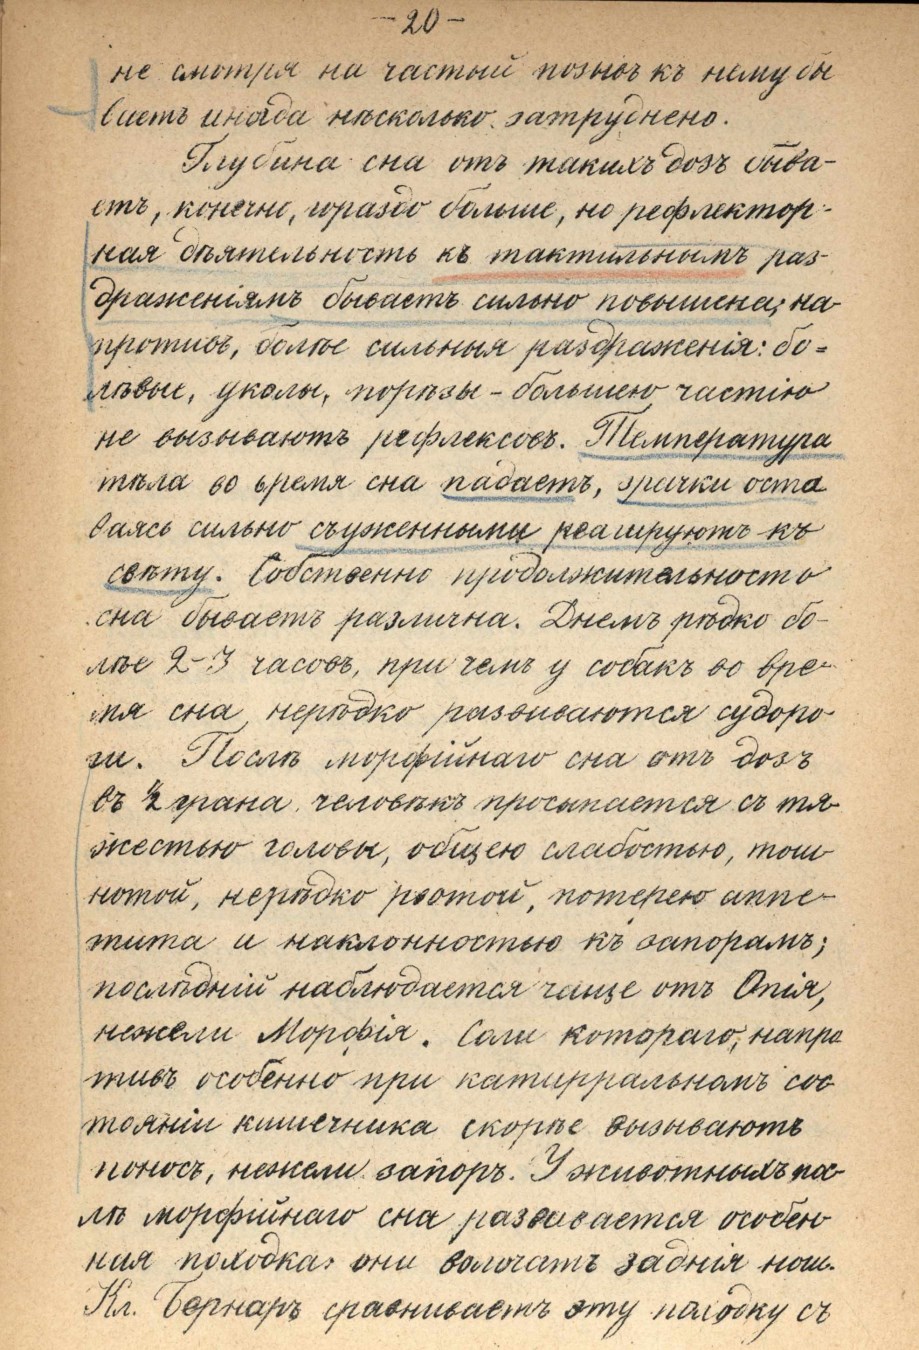 -20-
не смотря на частый позывъ къ нему бы
ваетъ иногда нѣсколько затруднено.
Глубина сна отъ такихъ дозъ быва-
етъ, конечно, гораздо больше, но рефлектор-
ная дѣятельность къ тактильнымъ раз-
драженіямъ бываетъ сильно повышена; на-
противъ, болѣе сильныя раздраженія: бо=
лѣвые, уколы, порѣзы - большею частію
не вызываютъ рефлексовъ. Температура
тѣла во время сна падаетъ, зрачки оста
ваясь сильно съуженными реагируютъ къ
свѣту. Собственно продолжительность
сна бываетъ различна. Днемъ рѣдко бо-
лѣе 2-3 часовъ, при чемъ у собакъ во вре-
мя сна нерѣдко развиваются судоро-
ги. Послѣ морфійнаго сна отъ дозъ
въ ½ грана человѣкъ просыпается съ тя-
жестью головы, общею слабостью, тош-
нотой, нерѣдко рвотой, потерею аппе-
тита и наклонностью къ запорамъ;
послѣдній наблюдается чаще отъ Опія,
нежели Морфія. Соли котораго, напро
тивъ особенно при катирральномъ сос
тояніи кишечника скорѣе вызываютъ
поносъ, нежели запоръ. У животныхъ пос-
лѣ морфійнаго сна развивается особен
ная походка: они волочатъ заднія ноги.
Кл. Бернаръ сравниваетъ эту походку съ